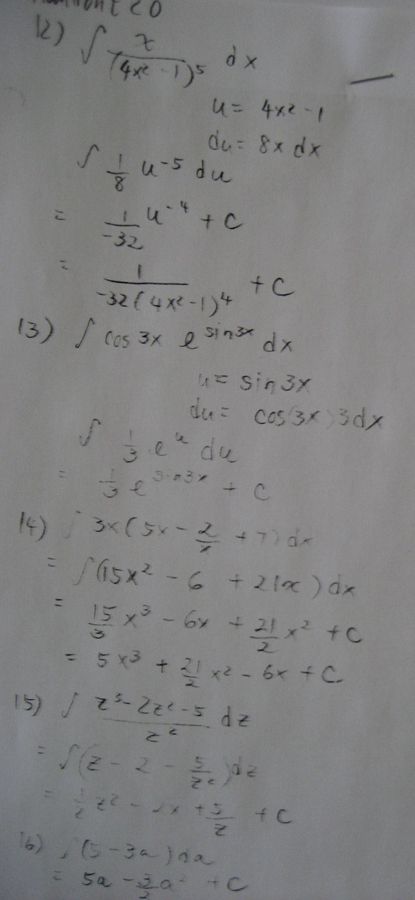 12) ∫ x/(4x² - 1)⁵ dx
u = 4x² - 1
du = 8x dx
∫ 1/8 u⁻⁵ du
= 1/-32 u⁻⁴ + C
= 1/-32(4x² - 1)⁴ + C
13) ∫ cos 3x e^sin3x dx
u = sin 3x
du = cos(3x) 3dx
∫ 1/3 e^u du
= 1/3 e^sin3x + C
14) ∫ 3x(5x - 2/x + 7) dx
= ∫(15x² - 6 + 21x) dx
= 15/3 x³ - 6x + 21/2 x² + C
= 5x³ + 21/2 x² - 6x + C
15) ∫ z³ - 2z² - 5/z² dz
= ∫(z - 2 - 5/z²) dz
= 1/2 z² - 2x + 5/z + C
16) ∫(5 - 3a) da
= 5a - 3/2 a² + C